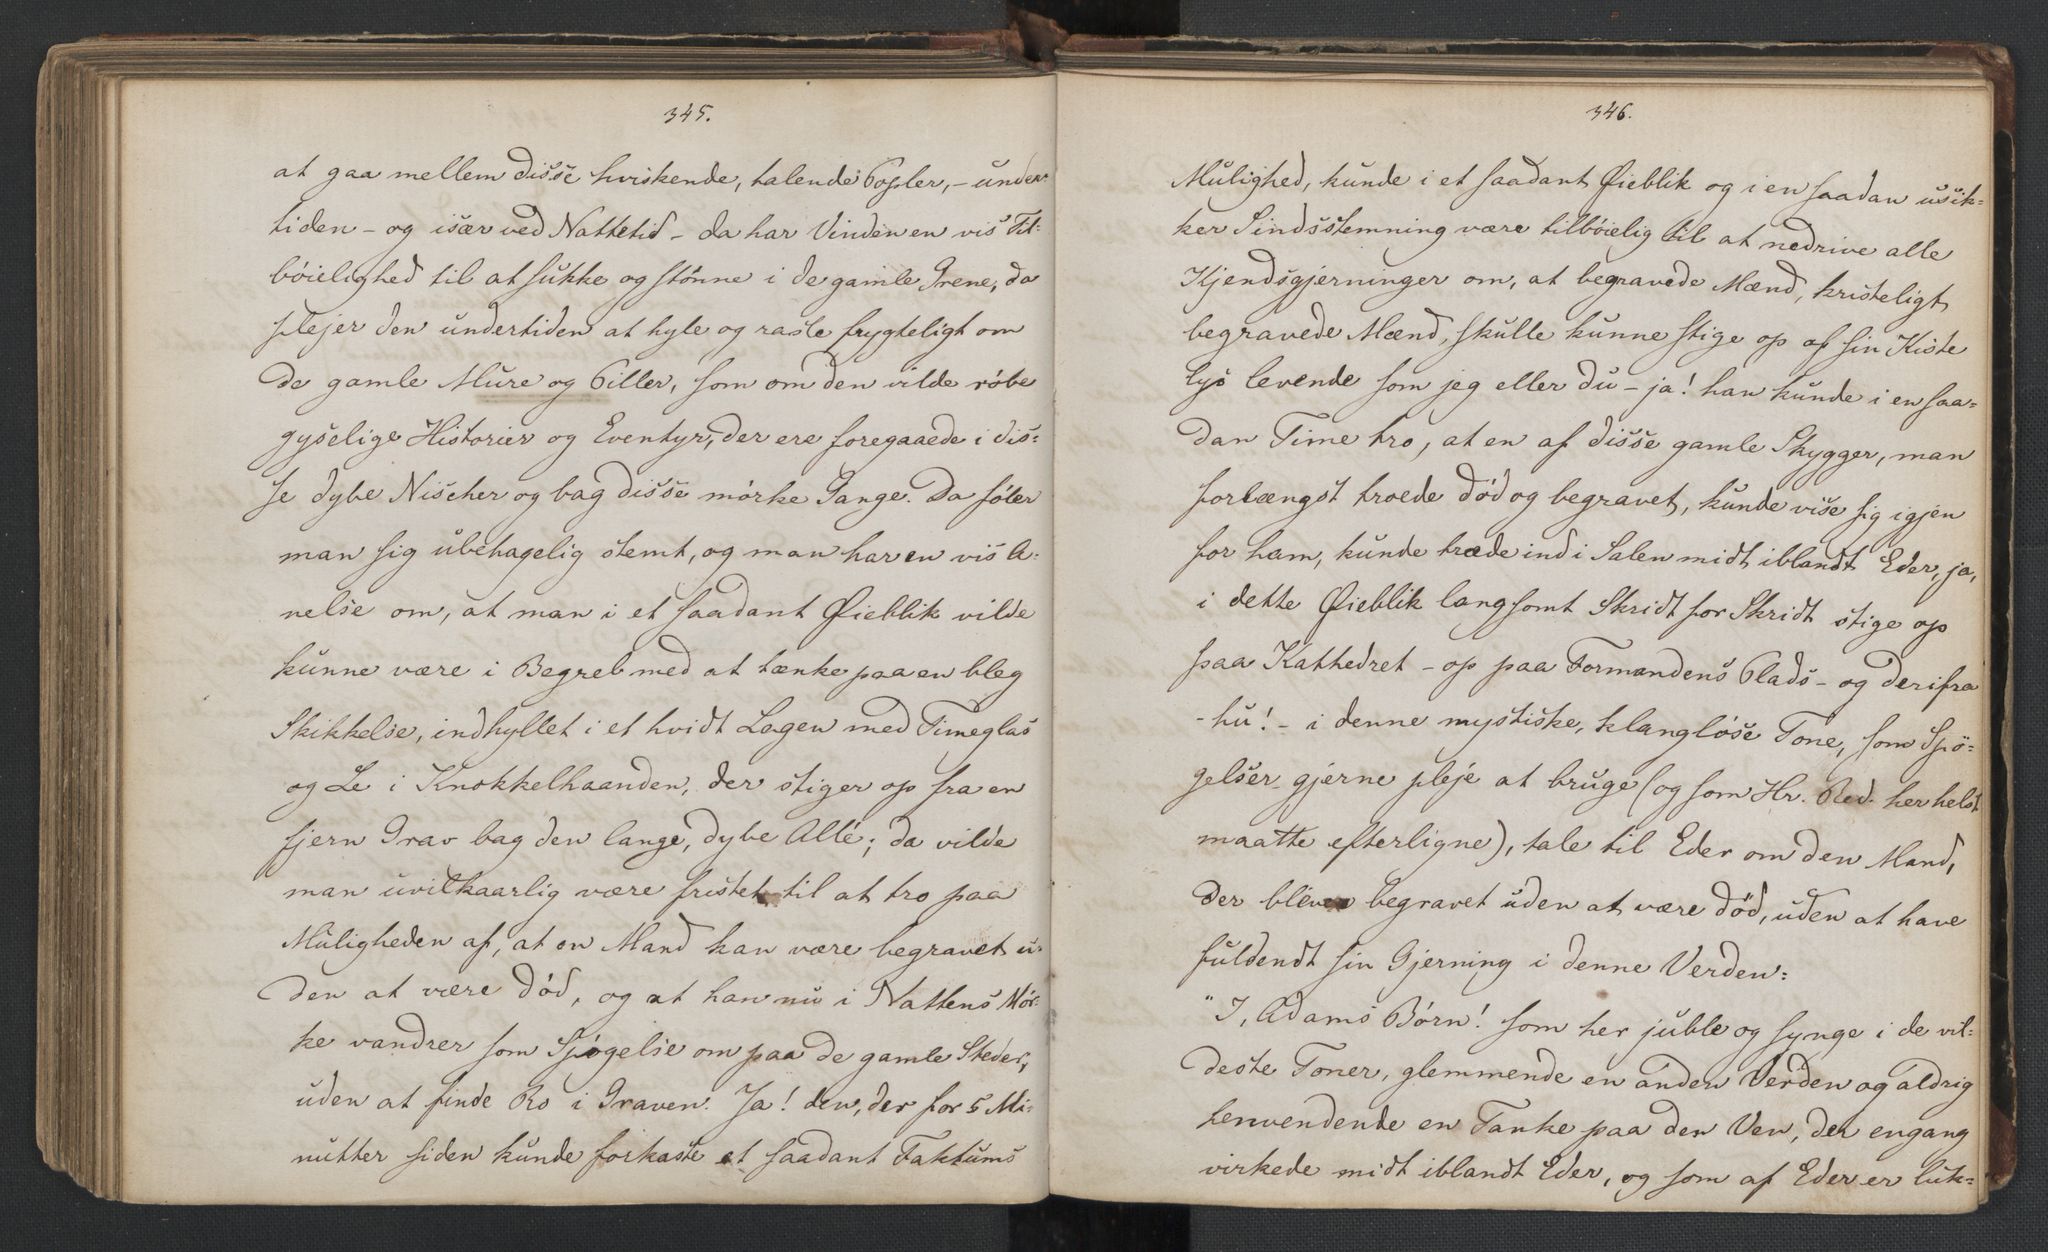 345.
at gaa mellem disse hviskende, talende Popler, – under-
tiden – og især ved Nattetid – da har Vinden en vis Til-
bøielighed til at sukke og stønne i de gamle Grene, da
plejer den undertiden at hyle og rasle frygteligt om
de gamle Mure og Piller, som om den vilde røbe
gyselige Historier og Eventyr, der ere foregaaede i dis-
se dybe Nischer og bag disse mørke Gange. Da føler
man sig ubehagelig stemt, og man har en vis A-
nelse om, at man i et saadant Øieblik vilde
kunne være i Begreb med at tænke paa en bleg
Skikkelse, indhyllet i et hvidt Lagen med Timeglas
og Le i Knokkelhaanden, der stiger op fra en
fjern Grav bag den lange, dybe Allé; da vilde
man uvilkaarlig være fristet til at tro paa
Muligheden af, at en Mand kan være begravet u-
den at være død, og at han nu i Nattens Mør-
ke vandrer som Spøgelse om paa de gamle Steder,
uden at finde Ro i Graven. Ja! den, der for 5 Mi-
nutter siden kunde forkaste et saadant Faktums
346.
Mulighed, kunde i et saadant Øieblik og i en saadan usik-
ker Sindsstemning være tilbøielig til at nedrive alle
Kjendsgjerninger om, at begravede Mænd, kristeligt
begravede Mænd, skulle kunne stige op af sin Kiste
lys levende som jeg eller du – ja! han kunde i en saa-
dan Time tro, at en af disse gamle Skygger, man
forlængst troede død og begravet, kunde vise sig igjen
for ham, kunde træde ind i Salen midt iblandt Eder, ja,
i dette Øieblik langsomt Skridt for Skridt stige op
paa Kathedret – op paa Formandens Plads – og derifra
– hu! – i denne mystiske, klangløse Tone, som Spø-
gelser gjerne pleje at bruge (og som Hr. Red. her helst
maatte efterligne), tale til Eder om den Mand,
der bleven begravet uden at være død, uden at have
fuldendt sin Gjerning i denne Verden:
"I, Adams Børn! som her juble og synge i de vil-
deste Toner, glemmende en anden Verden og aldrig
henvendende en Tanke paa den Ven, der engang
virkede midt iblandt Eder, og som af Eder er luk-